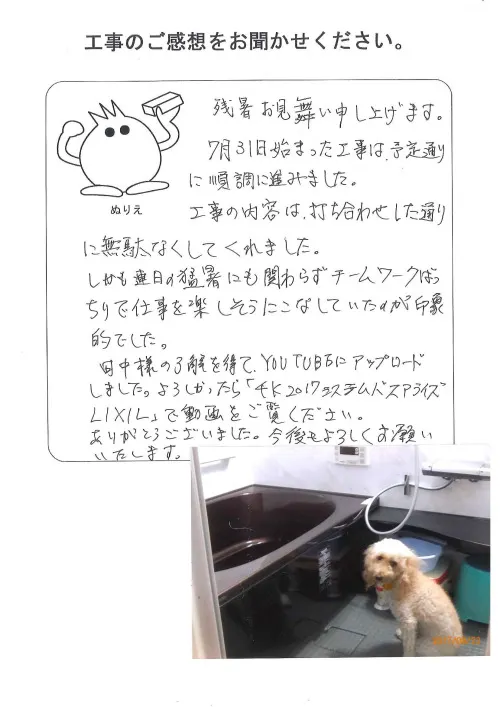 工事のご感想をお聞かせください。
残暑お見舞い申し上げます。
7月31日始まった工事は、予定通り
に順調に進みました。
ぬりえ
工事の内容は、打ち合わせした通り
に無駄なくしてくれました。
しかも連日の猛暑にも関わらずチームワークばっ
ちりで仕事を楽しそうにこなしていたのが印象
的でした。
田中様の了解を得て、YOUTUBEにアップロード
しました。よろしかったら「4K2017システムバスアライズ
LIXIL」で動画をご覧ください。
ありがとうございました。今後もよろしくお願い
いたします。